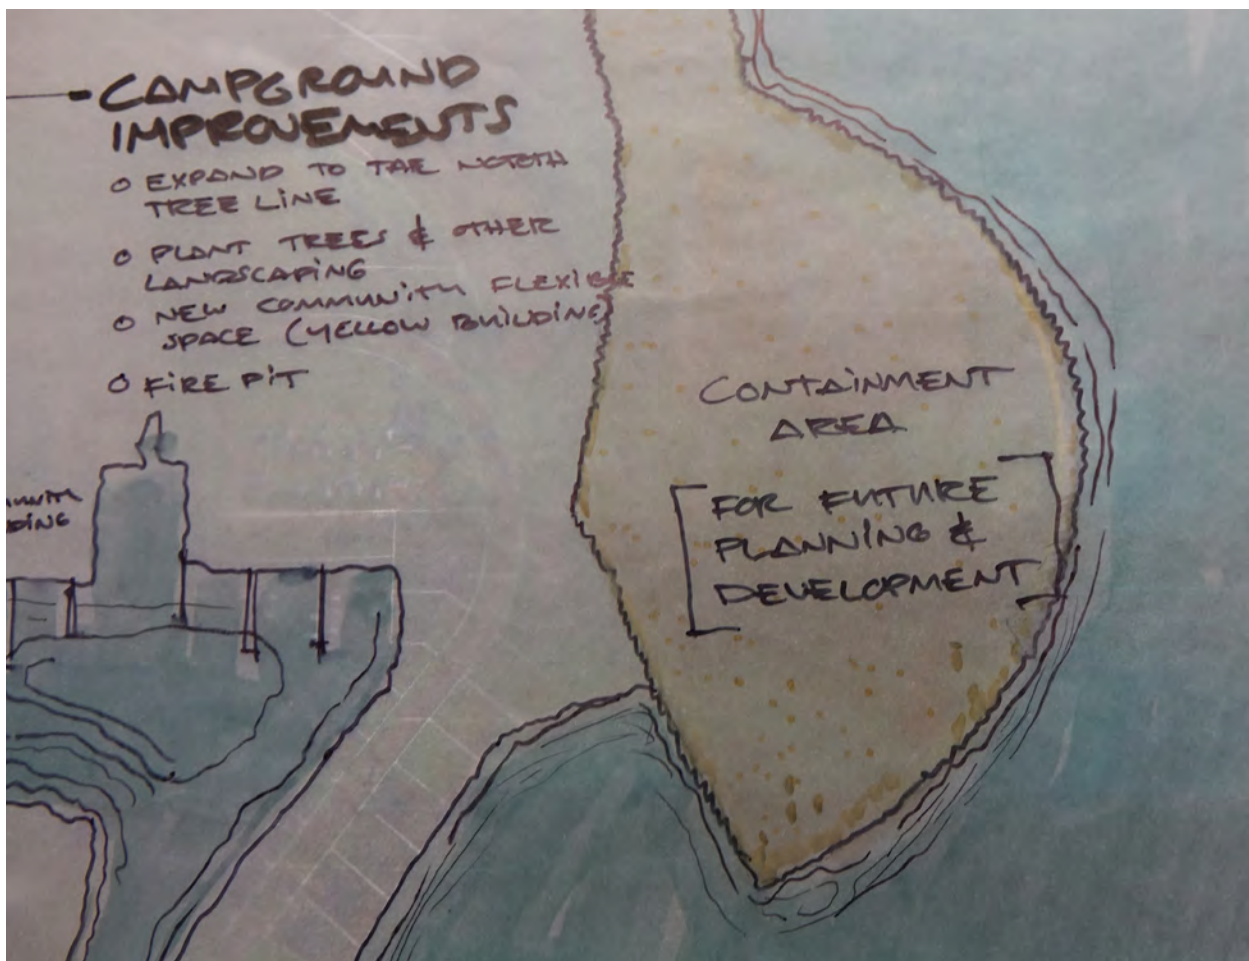 CAMPGROUND
IMPROVEMENTS
o EXPAND TO THE NORTH
TREE LINE
o PLANT TREES & OTHER
LANDSCAPING
o NEW COMMUNITY FLEXIBLE
SPACE (YELLOW BUILDING)
o FIRE PIT
CONTAINMENT
AREA
[FOR FUTURE
PLANNING &
DEVELOPMENT]